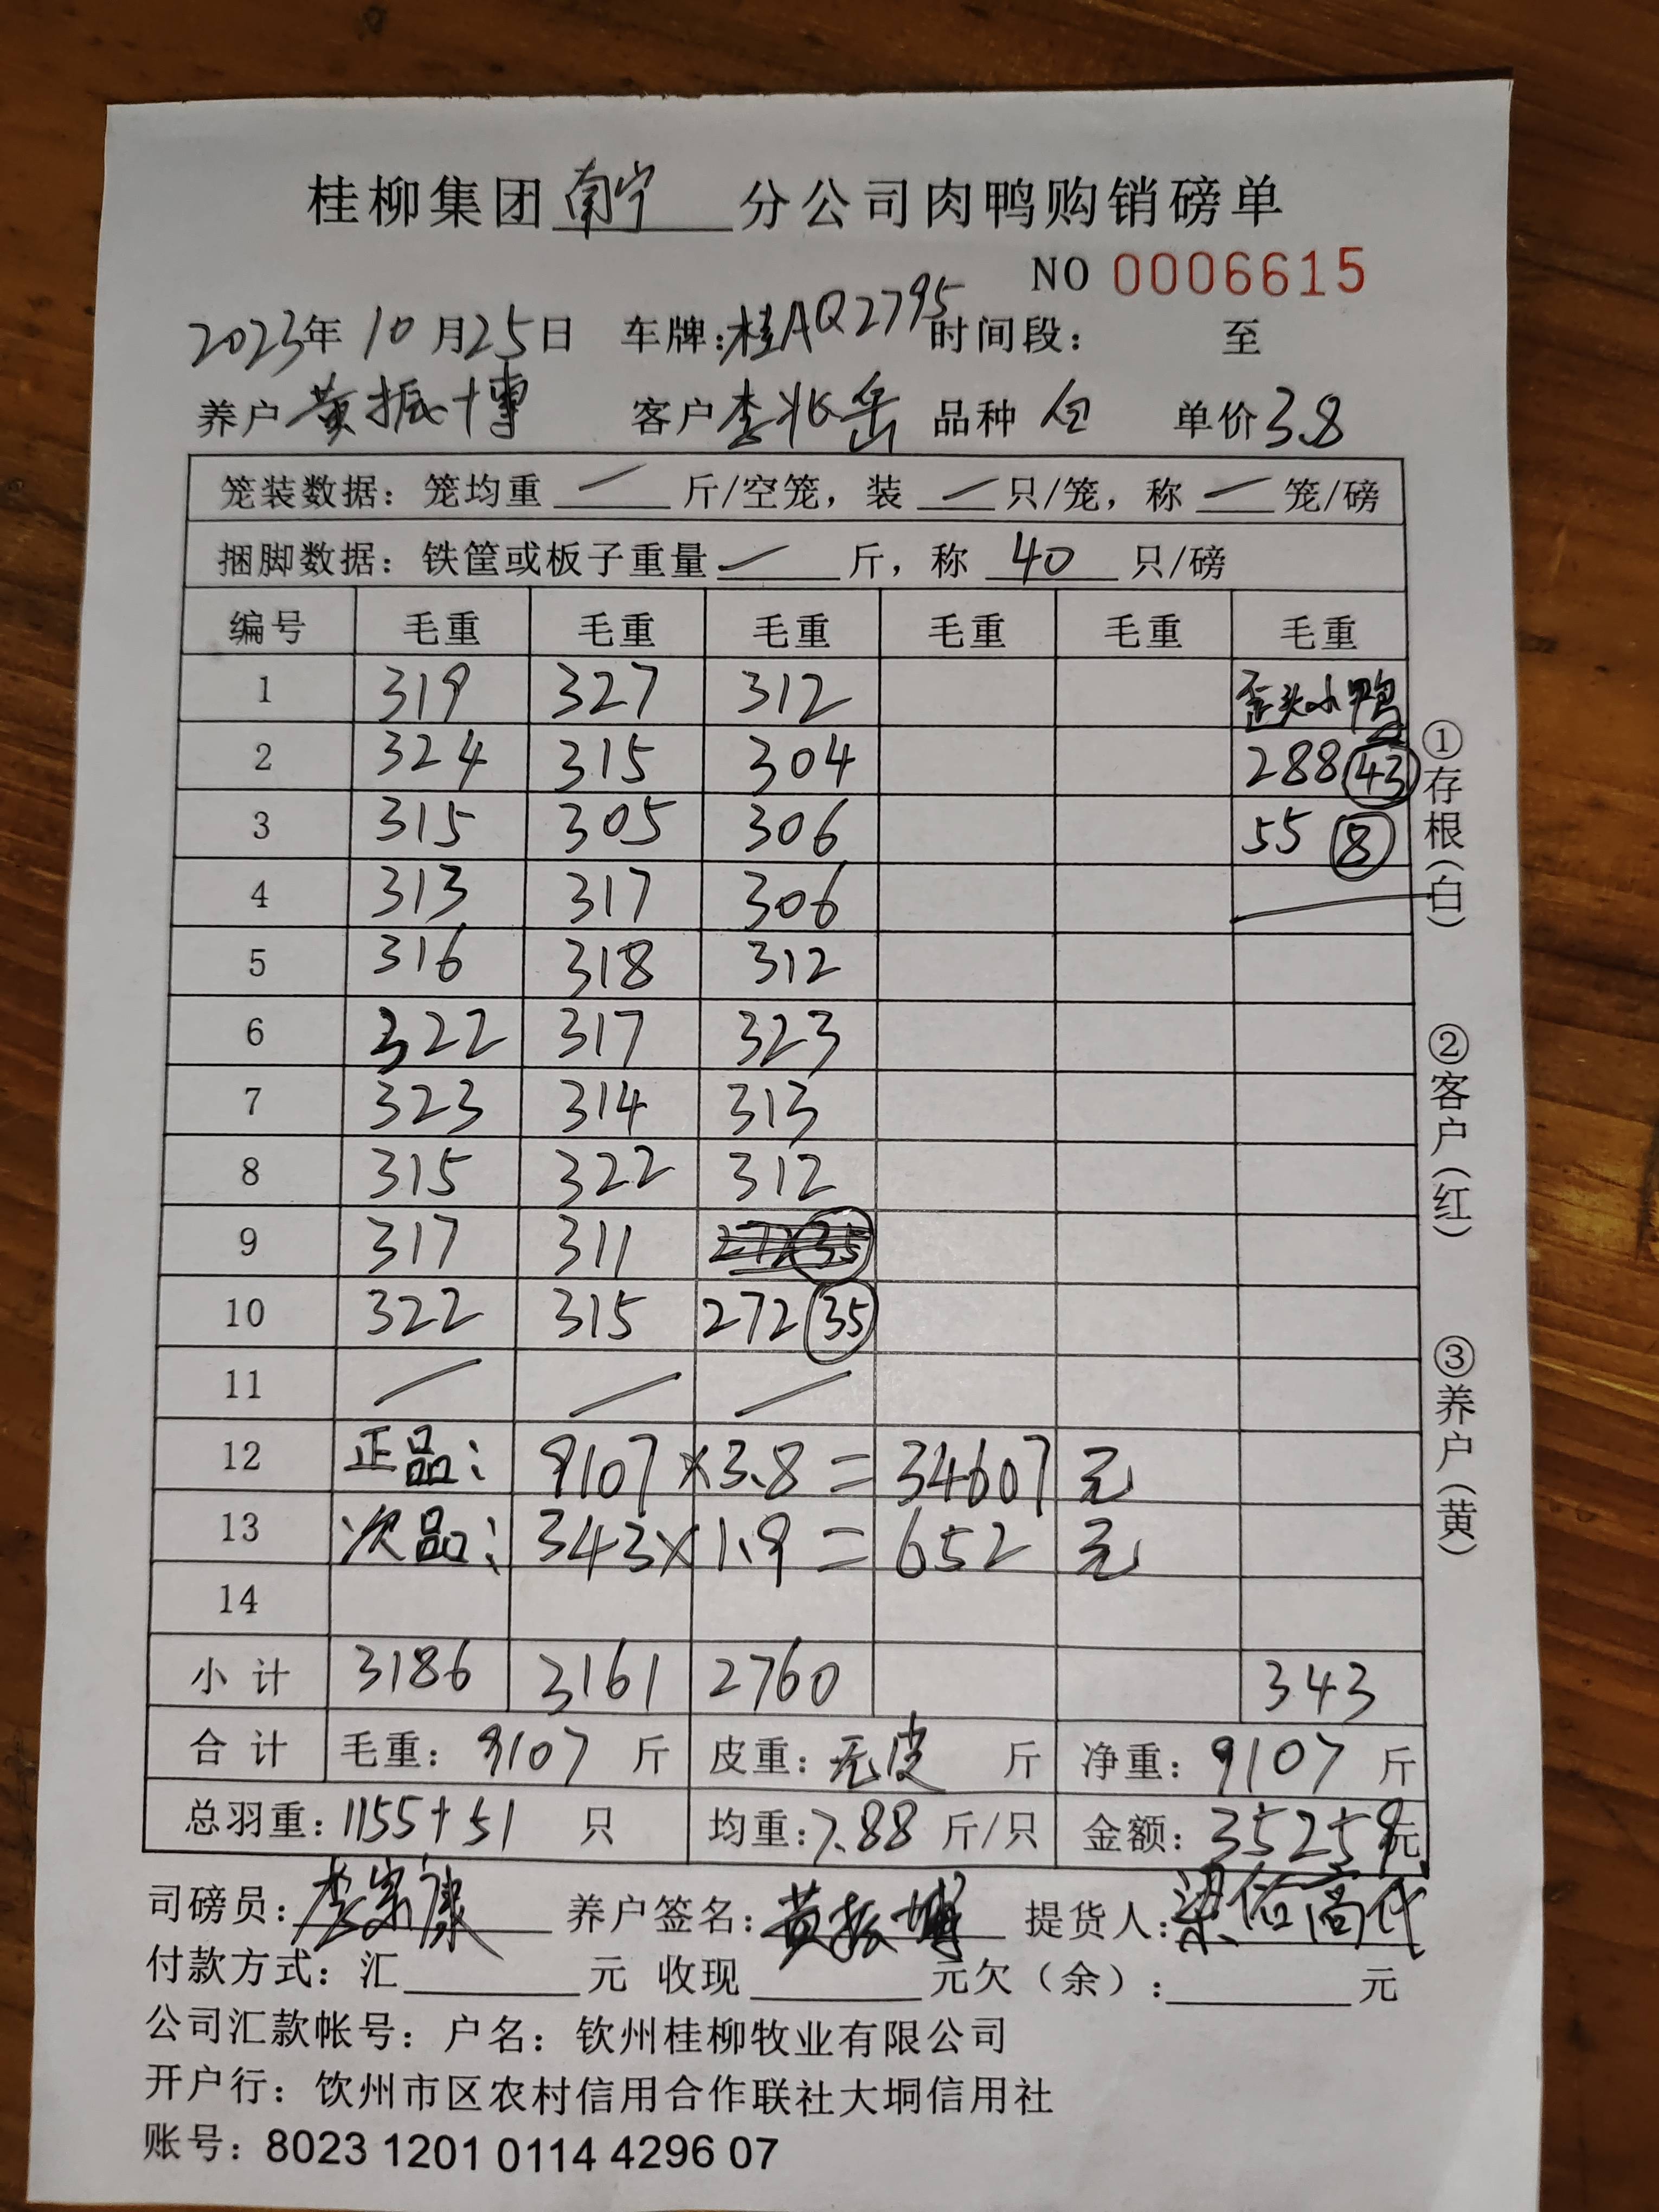 桂柳集团南宁分公司肉鸭购销磅单
NO 0006615
2023年10月25日 车牌:桂AQ2795 时间段: 至
养户 黄振博 客户 李兆岳 品种 仓 单价 3.8
笼装数据: 笼均重 — 斤/空笼, 装 — 只/笼, 称 — 笼/磅
捆脚数据: 铁筐或板子重量 — 斤, 称 40 只/磅
编号 毛重 毛重 毛重 毛重 毛重 毛重
1 319 327 312 歪头小鸭
2 324 315 304 288 43
3 315 305 306 55 8
4 313 317 306
5 316 318 312
6 322 317 323
7 323 314 313
8 315 322 312
9 317 311
10 322 315 272 35
11 — — —
12 正品: 9107×3.8=34607元
13 次品: 343×1.9=652元
14
小计 3186 3161 2760 343
合计 毛重: 9107 斤 皮重: 无皮 斤 净重: 9107 斤
总羽重: 1155+51 只 均重: 7.88 斤/只 金额: 35259元
司磅员: 李宗康 养户签名: 黄振博 提货人: 梁佰高代
付款方式: 汇 元 收现 元欠(余): 元
公司汇款帐号: 户名: 钦州桂柳牧业有限公司
开户行: 饮州市区农村信用合作联社大垌信用社
账号: 8023 1201 0114 4296 07
①存根(白) ②客户(红) ③养户(黄)